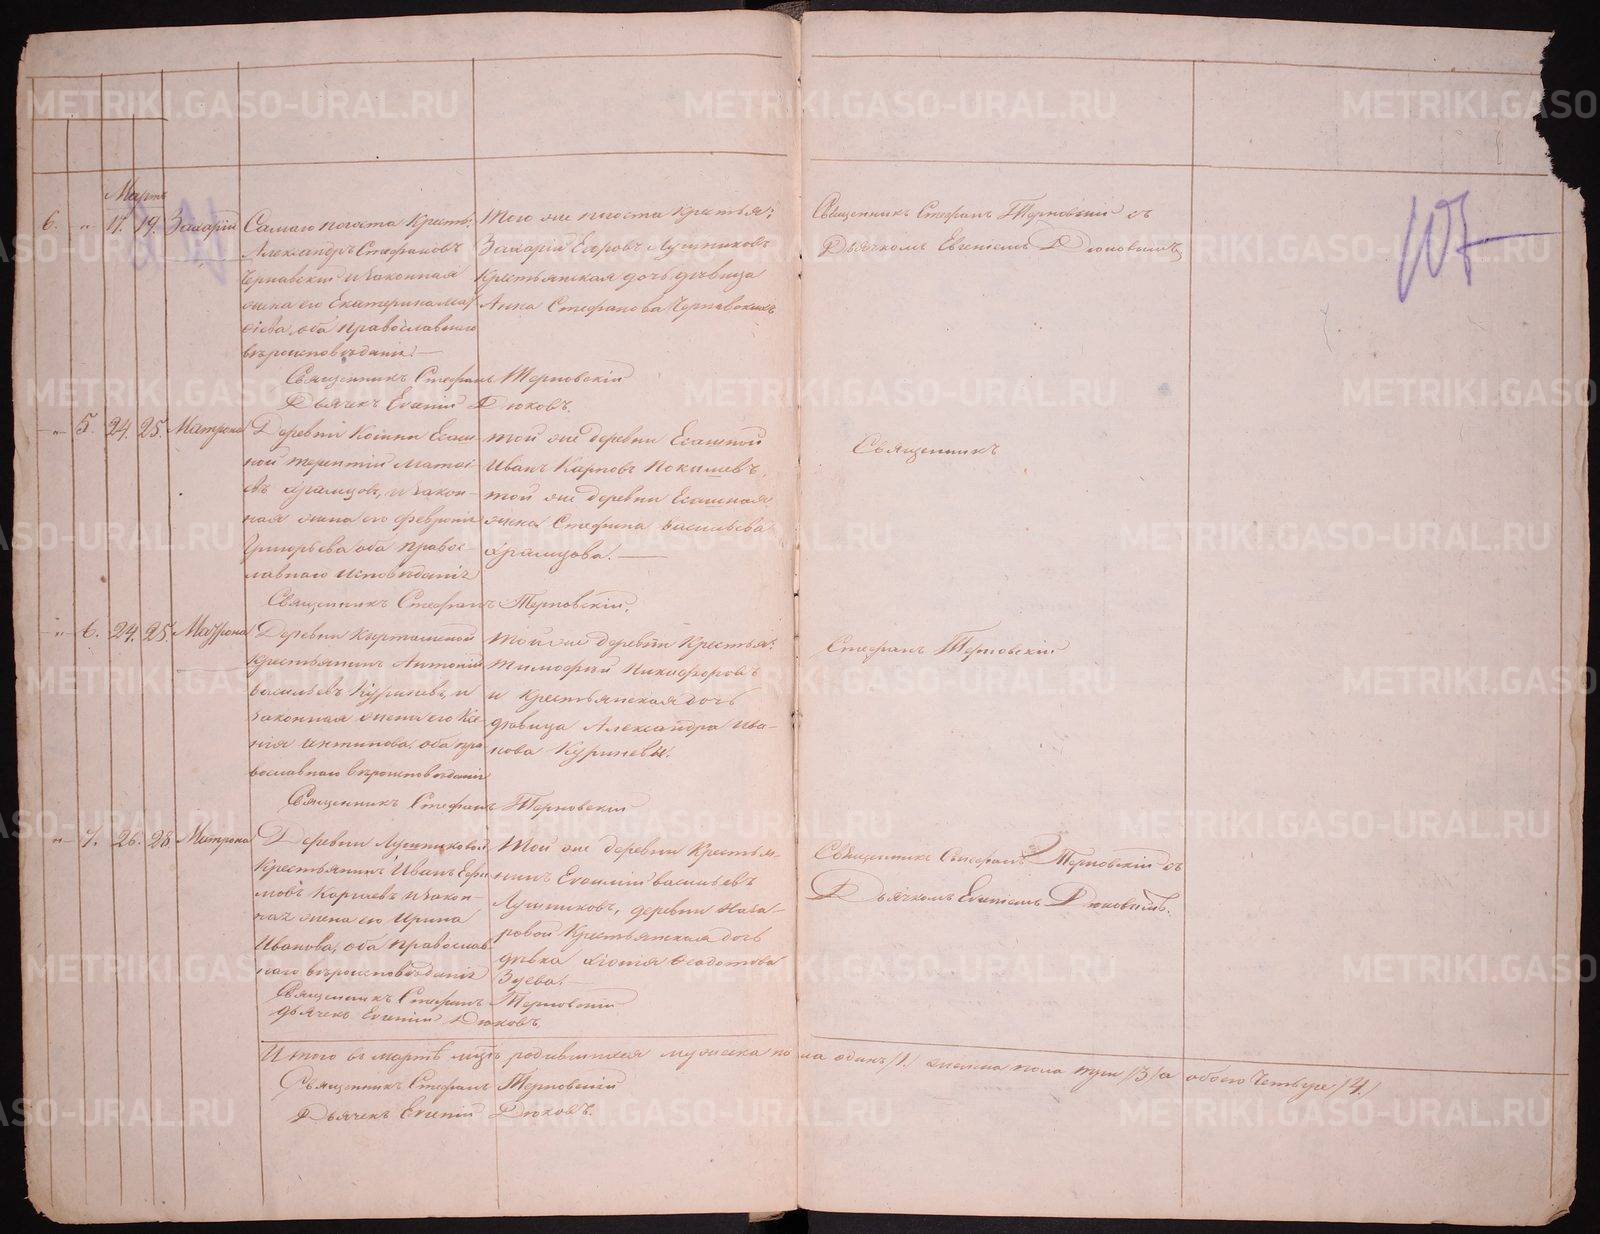 Мартъ
6. " 17. 19. Захарій
Самаго погоста Крестья:
Александръ Стефановъ
Чернавскій и законная
жена его Екатерина Мат
ѳіева, оба православнаго
вѣроисповѣданія.
Того же погоста Крестья:
Захарій Егоровъ Лушниковъ
Крестьянская дочь дѣвица
Анна Стефанова Чернавскихъ
Священникъ Стефанъ Терновскій съ
Дьячкомъ Евгеніемъ Дюковымъ
107
Священникъ Стефанъ Терновскій
Дьячекъ Евгеній Дюковъ.
" 5. 24. 25. Матрона
Деревни
ной Терентій Матѳі
евъ Храмцовъ, и закон-
ная жена его Февронія
Григорьева оба правос-
лавнаго исповѣданія
той же деревни
Иванъ Карповъ
той же деревни
жена Васильева
Храмцова.
Священникъ
Священникъ Стефанъ Терновскій.
" 6. 24. 25. Матрона
Деревни
Крестьянинъ Антоній
Васильевъ и
законная жена его Ксе
нія Антипова, оба пра
вославнаго вѣроисповѣданія
Той же деревни Крестья:
Тимофей Никифоровъ
и Крестьянская дочь
дѣвица Александра Ива-
нова
Стефанъ Терновскій
Священникъ Стефанъ Терновскій
" 7. 26. 28. Матрона
Деревни Лушниковой
Крестьянинъ Иванъ Ефи
мовъ и закон-
ная жена его Ирина
Иванова, оба православ
наго вѣроисповѣданія
Той же деревни Крестья-
нинъ Васильевъ
Лушниковъ, деревни Наза-
ровой Крестьянская дочь
дѣвка Ѳедотова
Зуева.
Священникъ Стефанъ Терновскій съ
Дьячкомъ Евгеніемъ Дюковымъ.
Священникъ Стефанъ Терновскій
дьячекъ Евгеній Дюковъ
Итого въ мартѣ мцѣ родившихся мужеска пола одинъ /1/ женска пола три /3/ а обоего четыре /4/
Священникъ Стефанъ Терновскій
Дьячекъ Евгеній Дюковъ.
METRIKI.GASO-URAL.RU